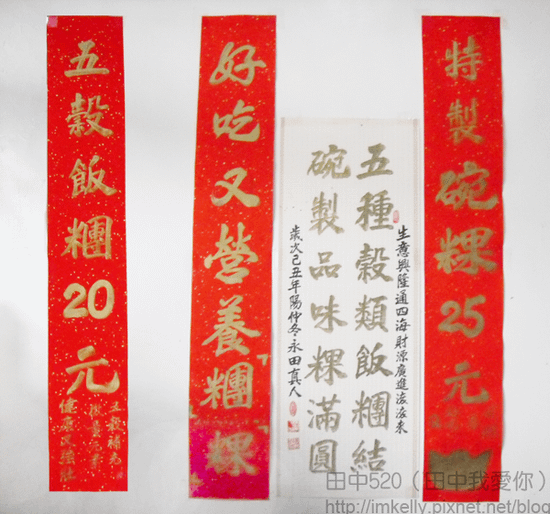 特製碗粿25元
生意興隆通四海財源廣進滾滾來
五種穀類飯糰結
碗製品味粿滿圓
歲次己丑年陽仲冬永田真人
好吃又營養糰粿
五穀飯糰20元
五穀補為
健康又強壯
田中520（田中我愛你）
http://imkelly.pixnet.net/bloo